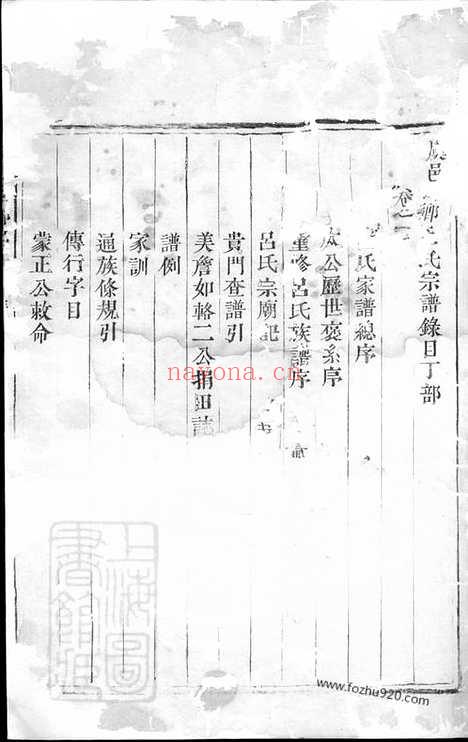 邑氏宗譜錄目丁部
卷之
氏家譜總序
公歷世褒系序
重修呂氏族譜序
呂氏宗廟記
貴門查譜引
美詹如輅二公捐田誌
譜例
家訓
通族條規引
傳行字目
蒙正公敕命
上海圖書館藏
nayona.cn
www.fozhu920.com